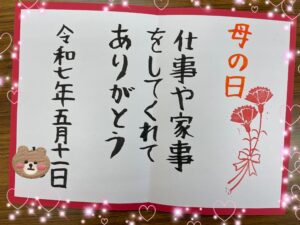 母の日
仕事や家事
をしてくれて
ありがとう
令和七年五月十一日